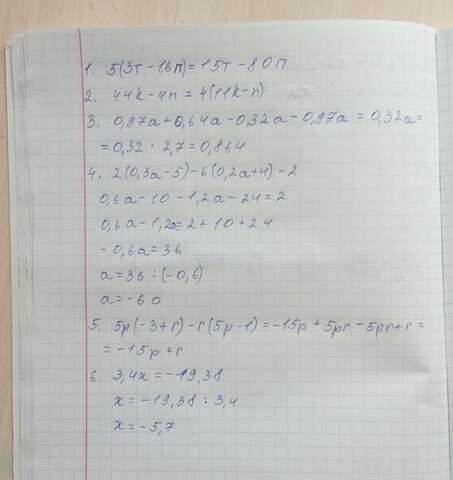 1. 5(3т - 16п) = 15т - 80п
2. 44k - 4n = 4(11k - n)
3. 0,97a + 0,64a - 0,32a - 0,97a = 0,32a =
= 0,32 · 2,7 = 0,864
4. 2(0,3a - 5) - 6(0,2a + 4) = 2
0,6a - 10 - 1,2a - 24 = 2
0,6a - 1,2a = 2 + 10 + 24
- 0,6a = 36
a = 36 : (-0,6)
a = -60
5. 5p(-3 + r) - r(5p - 1) = -15p + 5pr - 5pr + r =
= -15p + r
6. 3,4x = -19,38
x = -19,38 : 3,4
x = -5,7